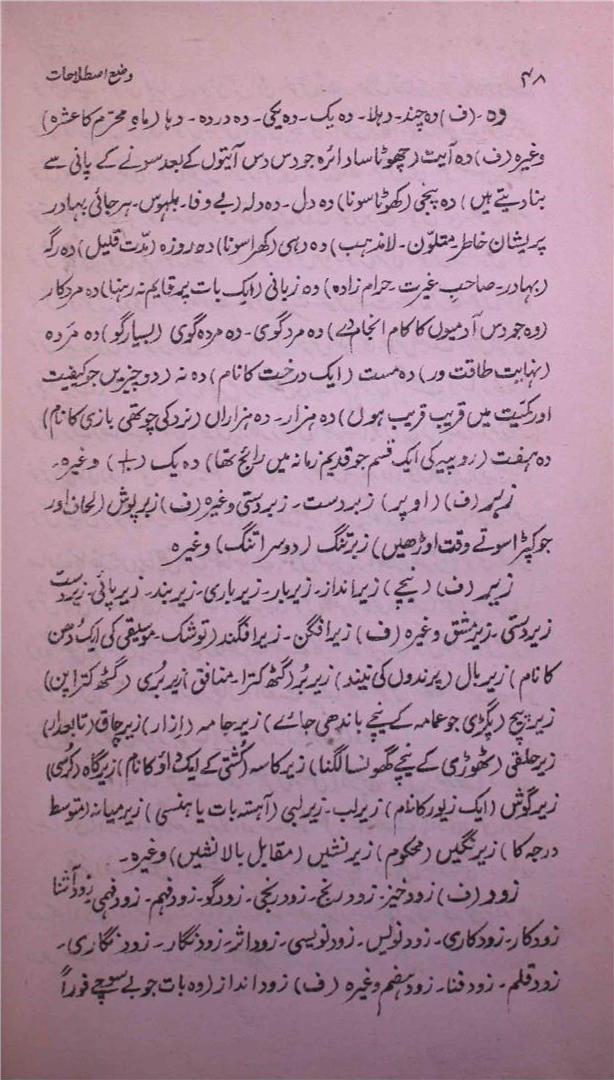 ۴۸ وضع اصطلاحات
دہ۔ (ف) دہ چند۔ دہلا۔ دہ یک۔ دہ یکی۔ دہ در دہ۔ دہا (ماہِ محرّم کا عشرہ)
وغیرہ (ف) دہ آیت (چھوٹا سا دائرہ جو دس دس آیتوں کے بعد سونے کے پانی سے
بنا دیتے ہیں) دہ پنجی (کھوٹا سونا) دہ دل۔ دہ دلہ (بے وفا۔ بلہوس۔ ہرجائی بہادر
پریشان خاطر۔ متلوّن۔ لا مذہب) دہ دہی (کھرا سونا) دہ روزہ (مدّت قلیل) دہ رگہ
(بہادر۔ صاحبِ غیرت۔ حرام زادہ) دہ زبانی (ایک بات پر قایم نہ رہنا) دہ مردکار
(وہ جو دس آدمیوں کا کام انجام دے) دہ مرد گوی۔ دہ مردہ گوی (بسیارگو) دہ مَردہ
(نہایت طاقت ور) دہ مست (ایک درخت کا نام) دہ نہ (دو چیزیں جو کیفیت
اور کمیّت میں قریب قریب ہوں) دہ ہزار۔ دہ ہزاراں (نرد کی چوتھی بازی کا نام)
دہ ہفت (روپیہ کی ایک قسم جو قدیم زمانہ میں رائج تھا) دہ یک (۱/۱۰) وغیرہ۔
زبر (ف) (اوپر) زبردست۔ زبردستی وغیرہ (ف) زبر پوش (لحاف اور
جو کپڑا سوتے وقت اوڑھیں) زبرتنگ (دوسرا تنگ) وغیرہ
زیر (ف) (نیچے) زیرانداز۔ زیربار۔ زیرباری۔ زیربند۔ زیرپائی۔ زیردست
زیردستی۔ زیرمشق وغیرہ (ف) زیرافگن۔ زیرافگند (توشک۔ موسیقی کی ایک دھن
کا نام) زیربال (پرندوں کی نیند) زیربُر (گٹھ کترا۔ منافق) زیربُری (گٹھ کتراپن)
زیرپیچ (پگڑی جو عمامہ کے نیچے باندھی جائے) زیرجامہ (اِزار) زیرچاق (تابعدار)
زیرحلقی (ٹھوڑی کے نیچے گھونسا لگنا) زیرکاسہ (کُشتی کے ایک داؤ کا نام) زیرگاہ (کُرسی)
زیرگوش (ایک زیور کا نام) زیرلب۔ زیرلبی (آہستہ بات یا ہنسی) زیرمیانہ (متوسط
درجہ کا) زیرنگیں (محکوم) زیرنشیں (مقابل بالا نشیں) وغیرہ۔
زود (ف) زودخیز۔ زودرنج۔ زودرنجی۔ زودگو۔ زودفہم۔ زودفہمی۔ زودآشنا
زودکار۔ زودکاری۔ زودنویس۔ زودنویسی۔ زوداثر۔ زودنگار۔ زودنگاری۔
زودقلم۔ زودفنا۔ زودہضم وغیرہ (ف) زودانداز (وہ بات جو بے سوچے فوراً